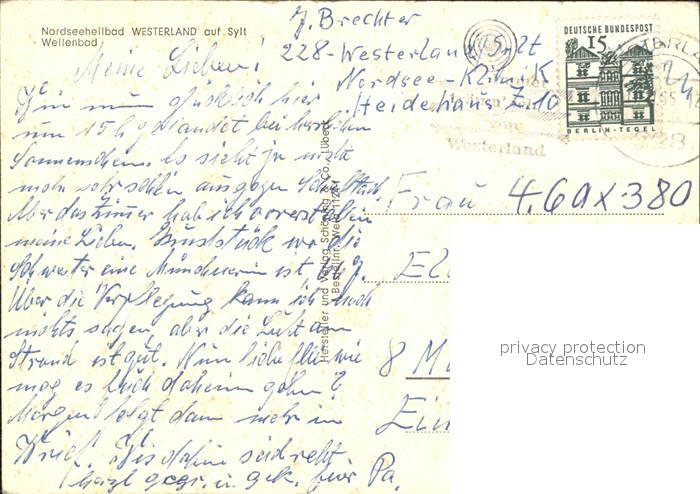 Nordseeheilbad WESTERLAND auf Sylt
Wellenbad
J. Brechter
228-Westerland/Sylt
Nordsee-Klinik
Heidehaus Z 10
DEUTSCHE BUNDESPOST
15
BERLIN-TEGEL
vom
Westerland
Meine Lieben!
Bin nun glücklich hier
um 15 h gelandet bei herrlichem
Sonnenschein. Es sieht ja nicht
mehr sehr schön aus gegen
Aber das Zimmer hab ich vorerst allein
meine Lieben. die
Schwester eine Münchnerin ist
Über die Verpflegung kann ich noch
nichts sagen, aber die Luft am
Strand ist gut. Nun wie
mag es Euch daheim gehen?
Morgen folgt dann mehr im
Brief. Bis dahin seid recht
herzl. gegr. u. gek. Euer Pa.
Hersteller und Verlag Schöning & Co., Lübeck
Frau 4.60x380
El
8 Mü
Ein
privacy protection
Datenschutz